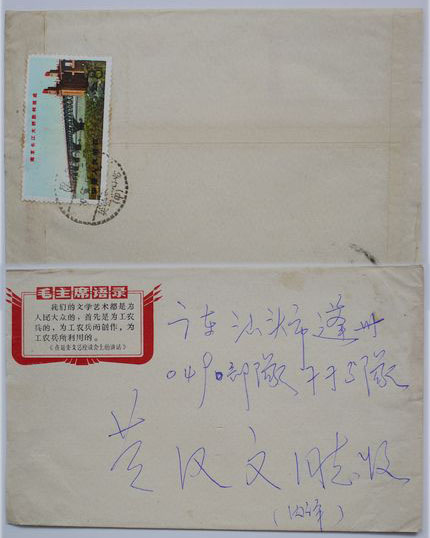 南京长江大桥胜利建成
毛主席语录
我们的文学艺术都是为
人民大众的，首先是为工农
兵的，为工农兵而创作，为
工农兵所利用的。
《在延安文艺座谈会上的讲话》
广东汕头市蓬州
0490部队
汉文同志收